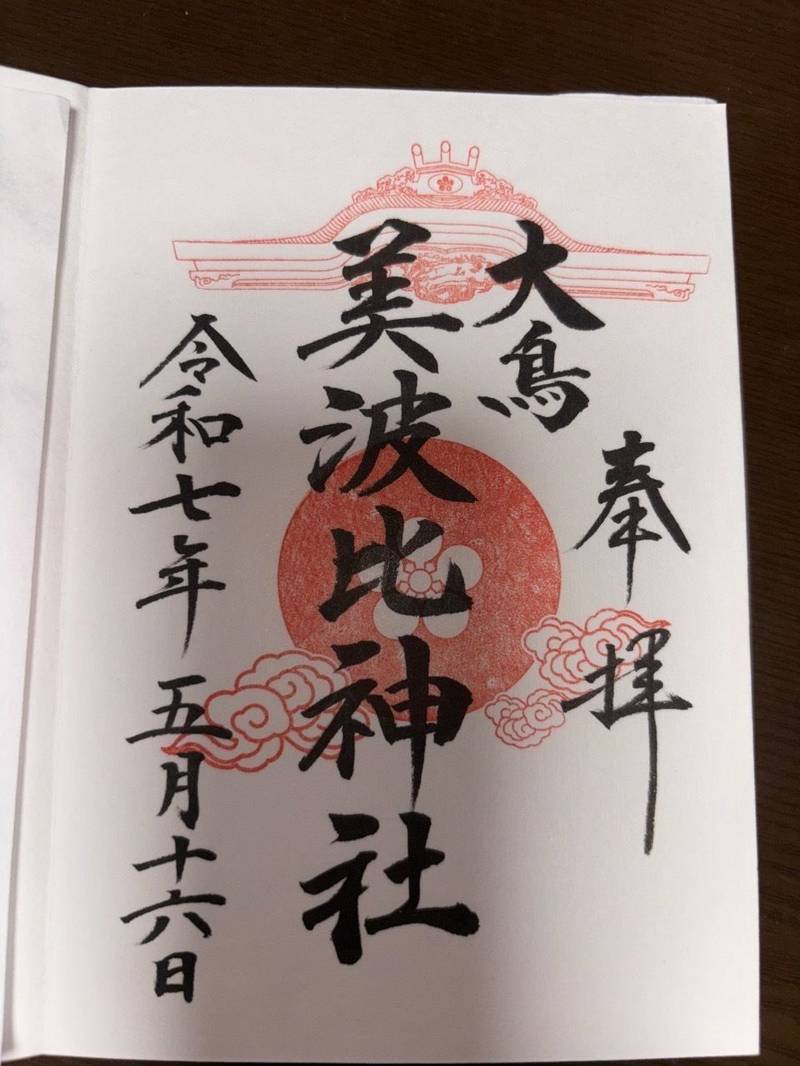 奉拝
大鳥
美波比神社
令和七年五月十六日